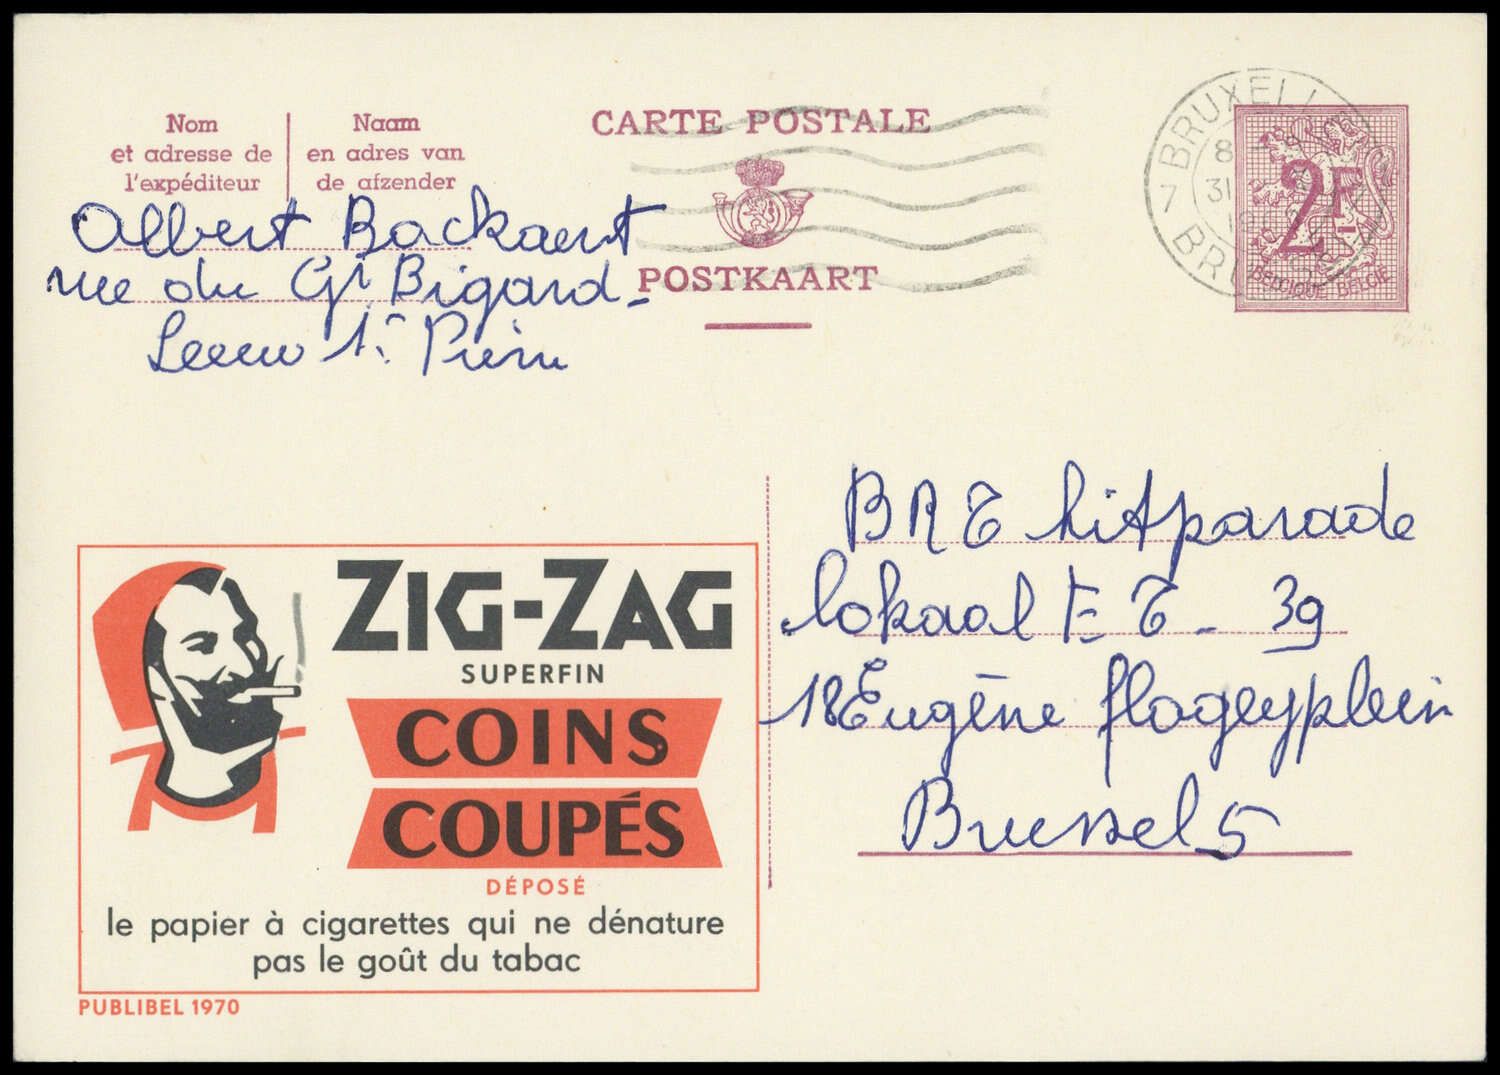 Nom
et adresse de
l'expéditeur
Naam
en adres van
de afzender
CARTE POSTALE
POSTKAART
BRUXELL
7
31
2F
BELGIQUE BELGIE
Albert Backaert
rue du Gl Bigard
Leeuw St Pierre
BRT hitparade
lokaal ET - 39
18 Eugène flageyplein
Brussel 5
ZIG-ZAG
SUPERFIN
COINS
COUPÉS
DÉPOSÉ
le papier à cigarettes qui ne dénature
pas le goût du tabac
PUBLIBEL 1970